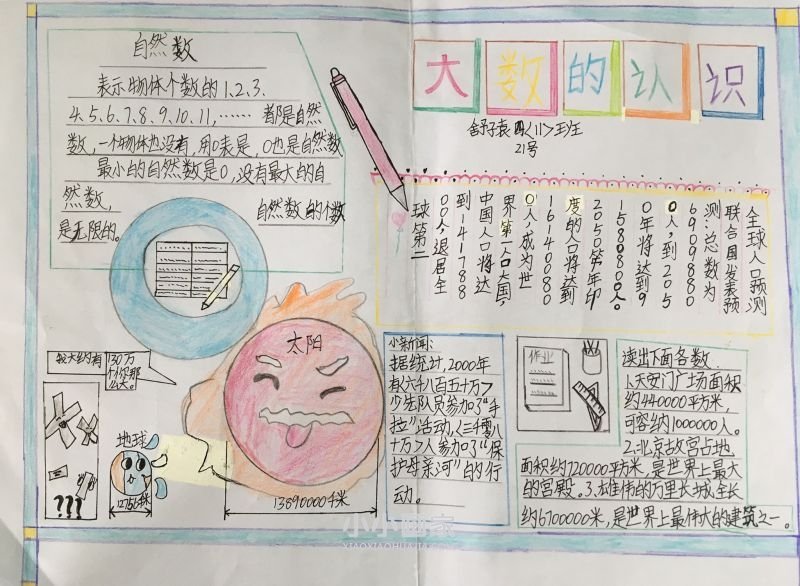 自然数
表示物体个数的1、2、3、
4、5、6、7、8、9、10、11,…… 都是自然
数,一个物体也没有,用0表是,0也是自然数
最小的自然数是0,没有最大的自
然数,
自然数的个数
是无限的。
大数的认识
舒子袁 四<11>班
21号
全球人口预测
联合国发表预
测:总数为
6909880
0人,到205
0年将达到9
158080人。
2050第年印
度的人口将达到
1614080
0人,成为世
界第一人口大国,
中国人口将达
到141788
00,退居全
球第二
较大约有
130万
个你那
么大。
???
地球
12756千米
太阳
13890000千米
小新闻:
据统计,2000年
有<六千八百五十万>
少先队员参加了“手
拉”活动,<三千零八
十万>人参加了“保
护母亲河”的行
动。
作业
读出下面各数.
1.天安门广场面积
约440000平方米,
可容纳1000000人。
2.北京故宫占地
面积约720000平方米,是世界上最大
的宫殿。3.雄伟的万里长城,全长
约6700000米,是世界上最伟大的建筑之一。
小小画家
XIAOXIAOHUAJIA